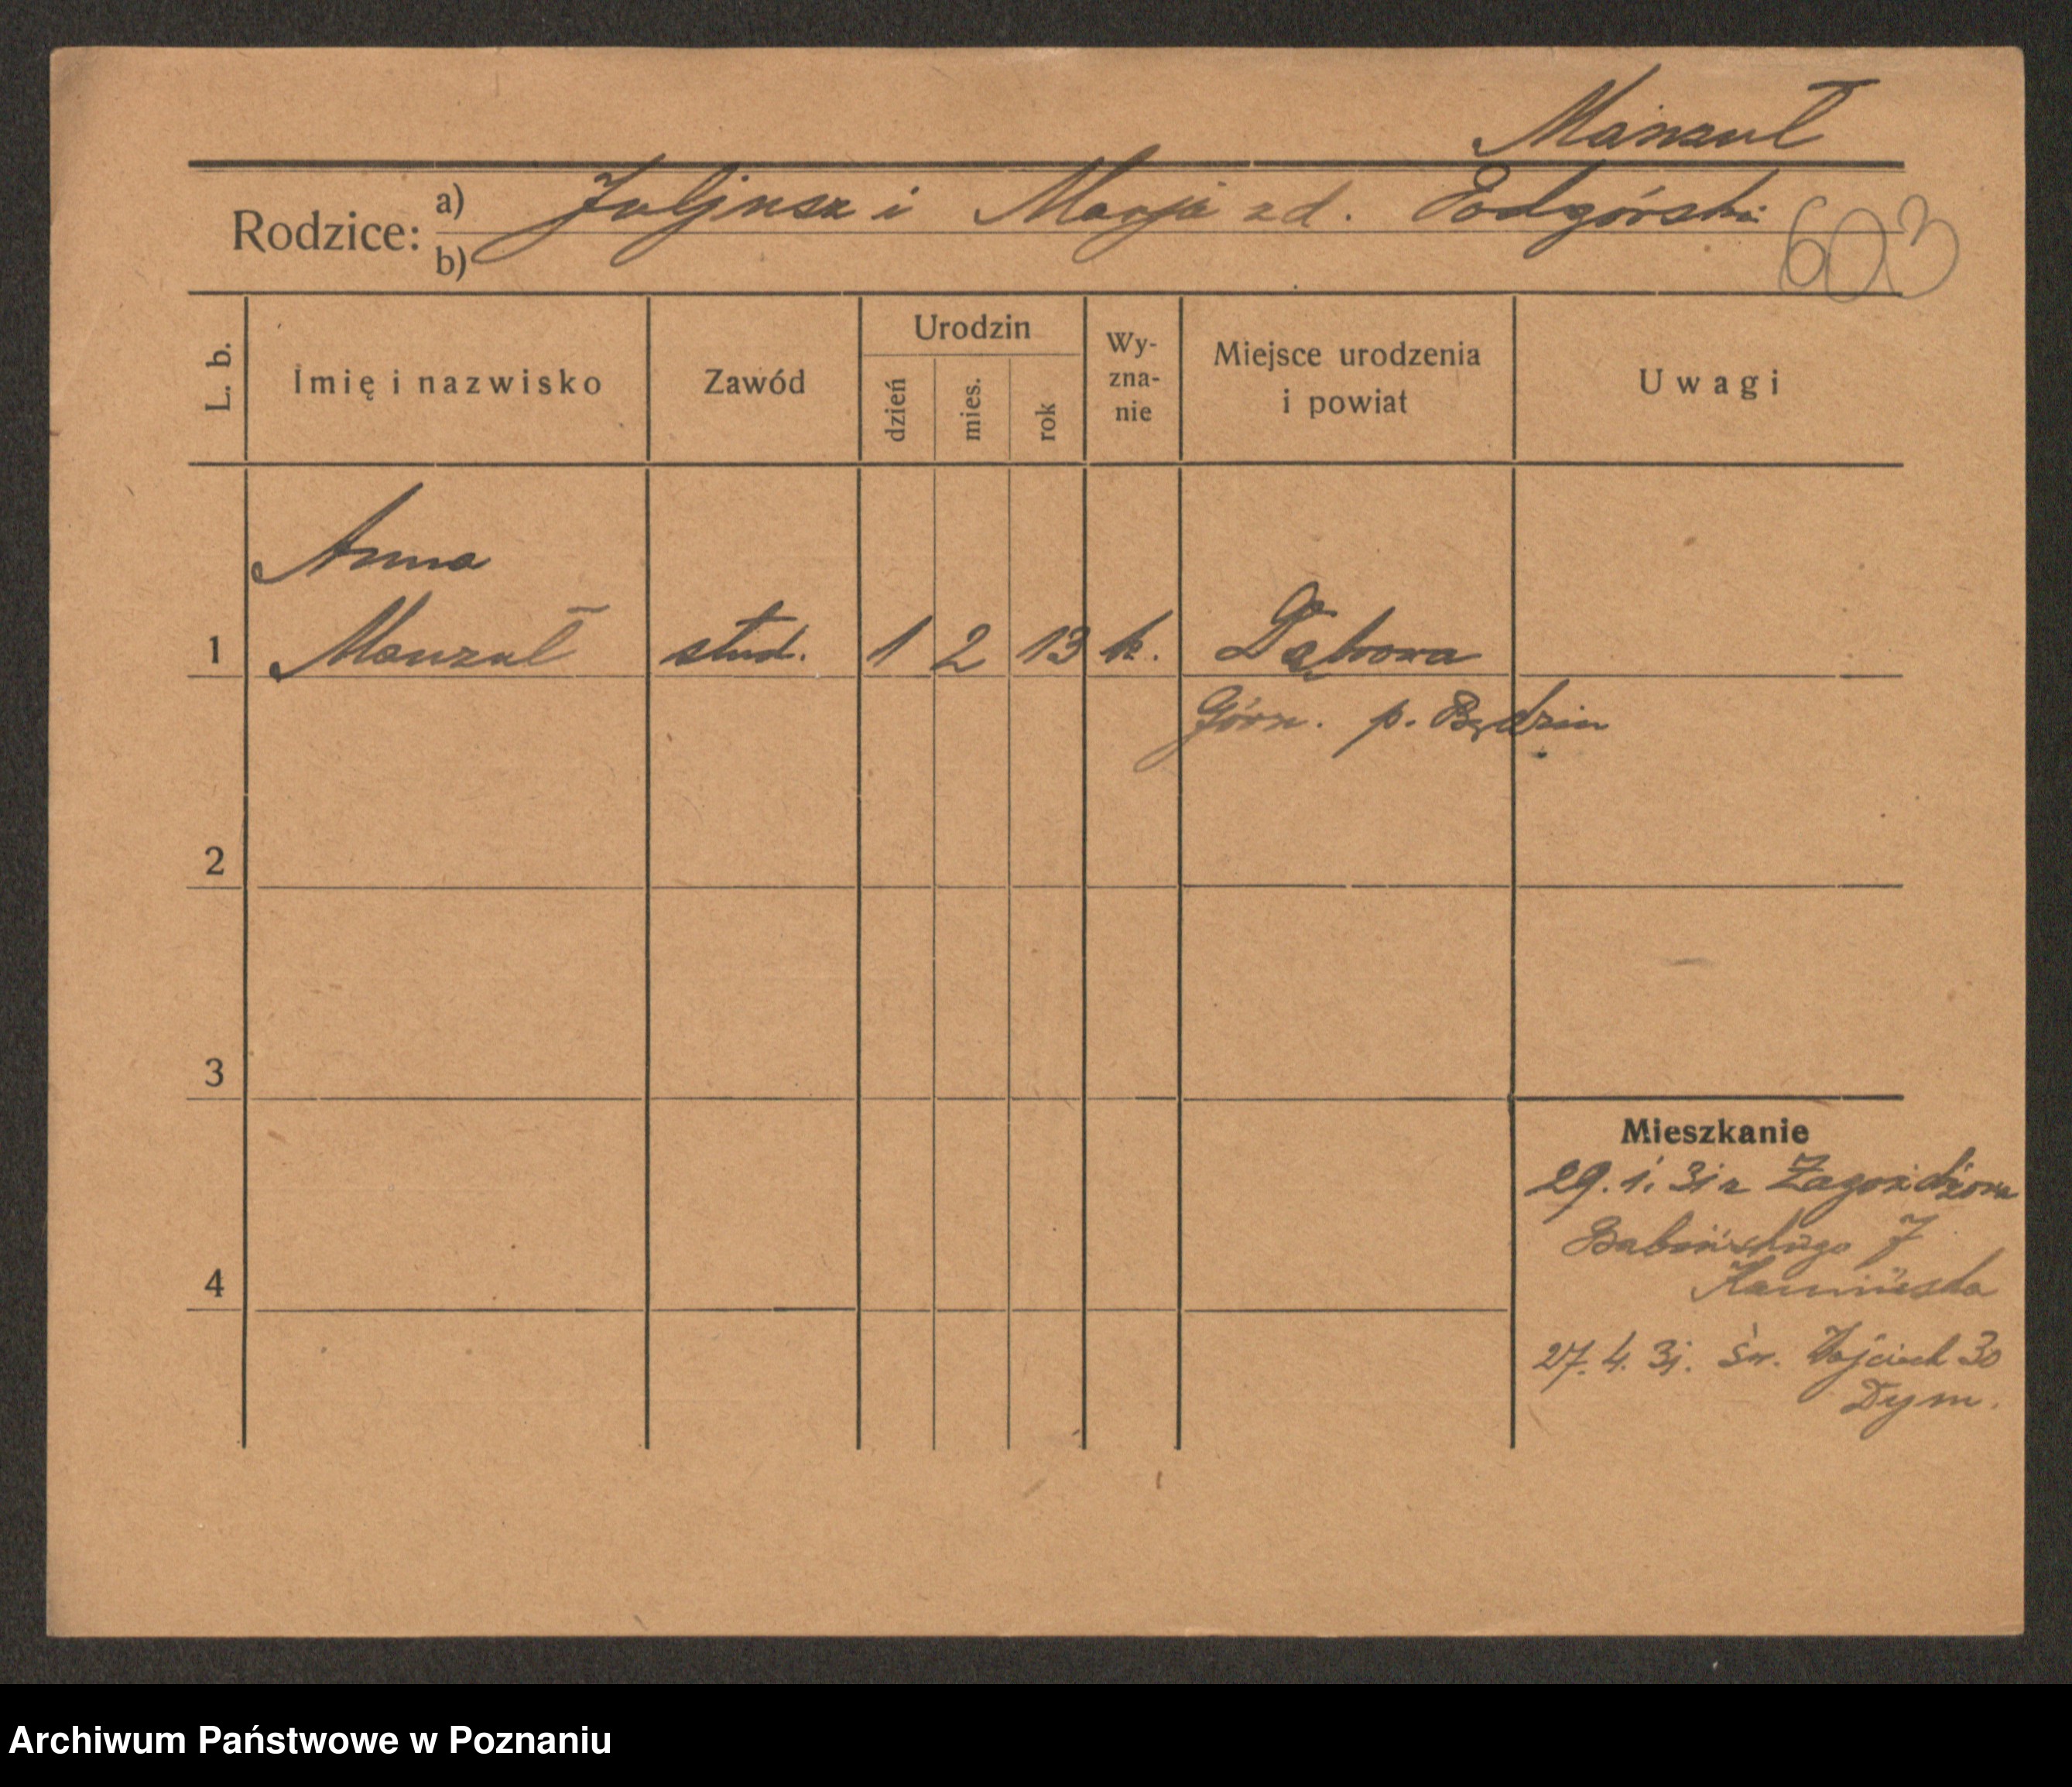 Manzuł
Rodzice: a) Juljusz i Marja zd. Podgórska
b)
603
L. b. Imię i nazwisko Zawód Urodzin dzień mies. rok Wy-zna-nie Miejsce urodzenia i powiat Uwagi
Anna
1 Manzuł stud. 1 2 13 k. Dąbrowa
Górn. p. Będzin
2
3
4
Mieszkanie
29. 1. 31 z
7
Kamińska
27. 4. 31. Św. Wojciech 30
Dym.
Archiwum Państwowe w Poznaniu